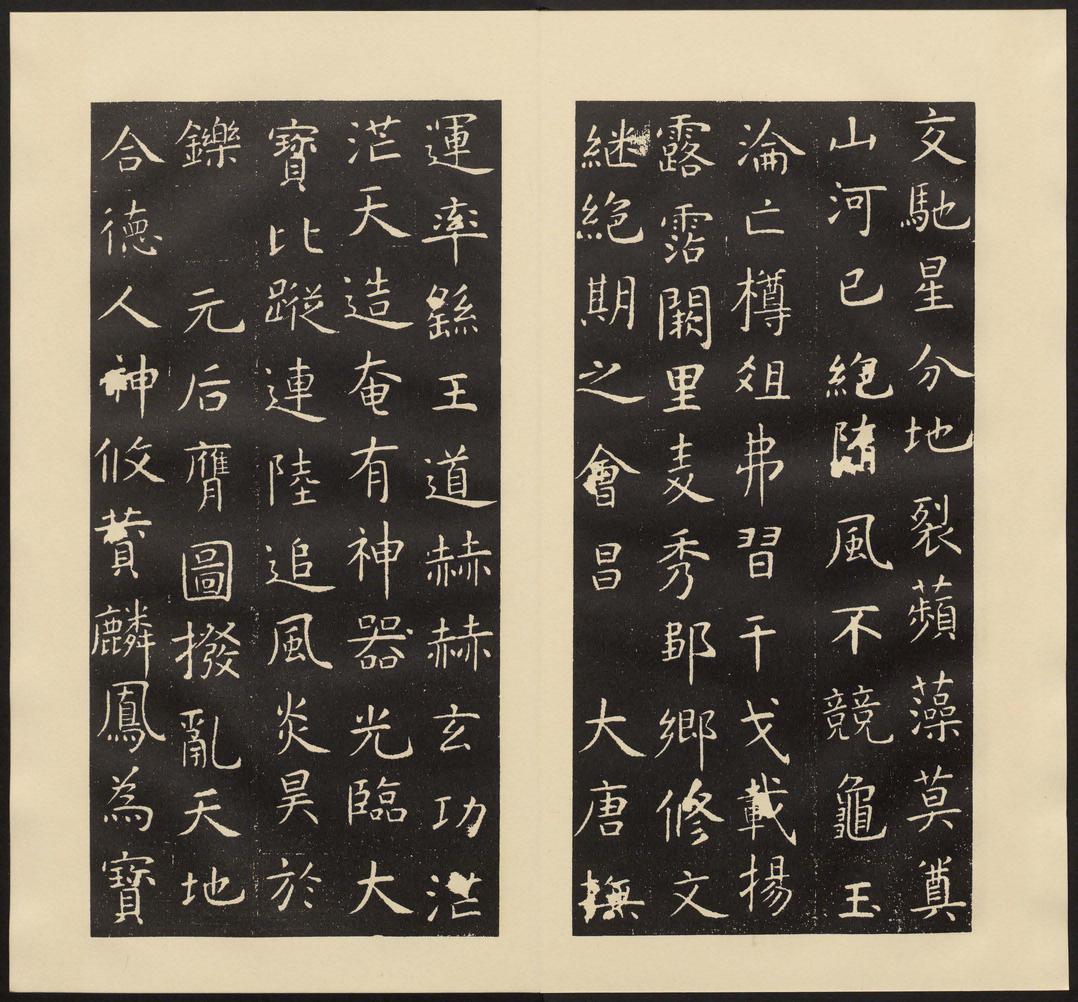 文馳星分地裂蘋藻莫奠
山河已絕隨風不競龜玉
淪亡樽俎弗習干戈載揚
露霑闕里麦秀鄒鄉修文
継絕期之會昌大唐撫
運率繇王道赫赫玄功茫
茫天造奄有神器光臨大
寶比蹤連陸追風炎昊於
鑠元后膺圖撥亂天地
合德人神攸賛麟鳳為寶